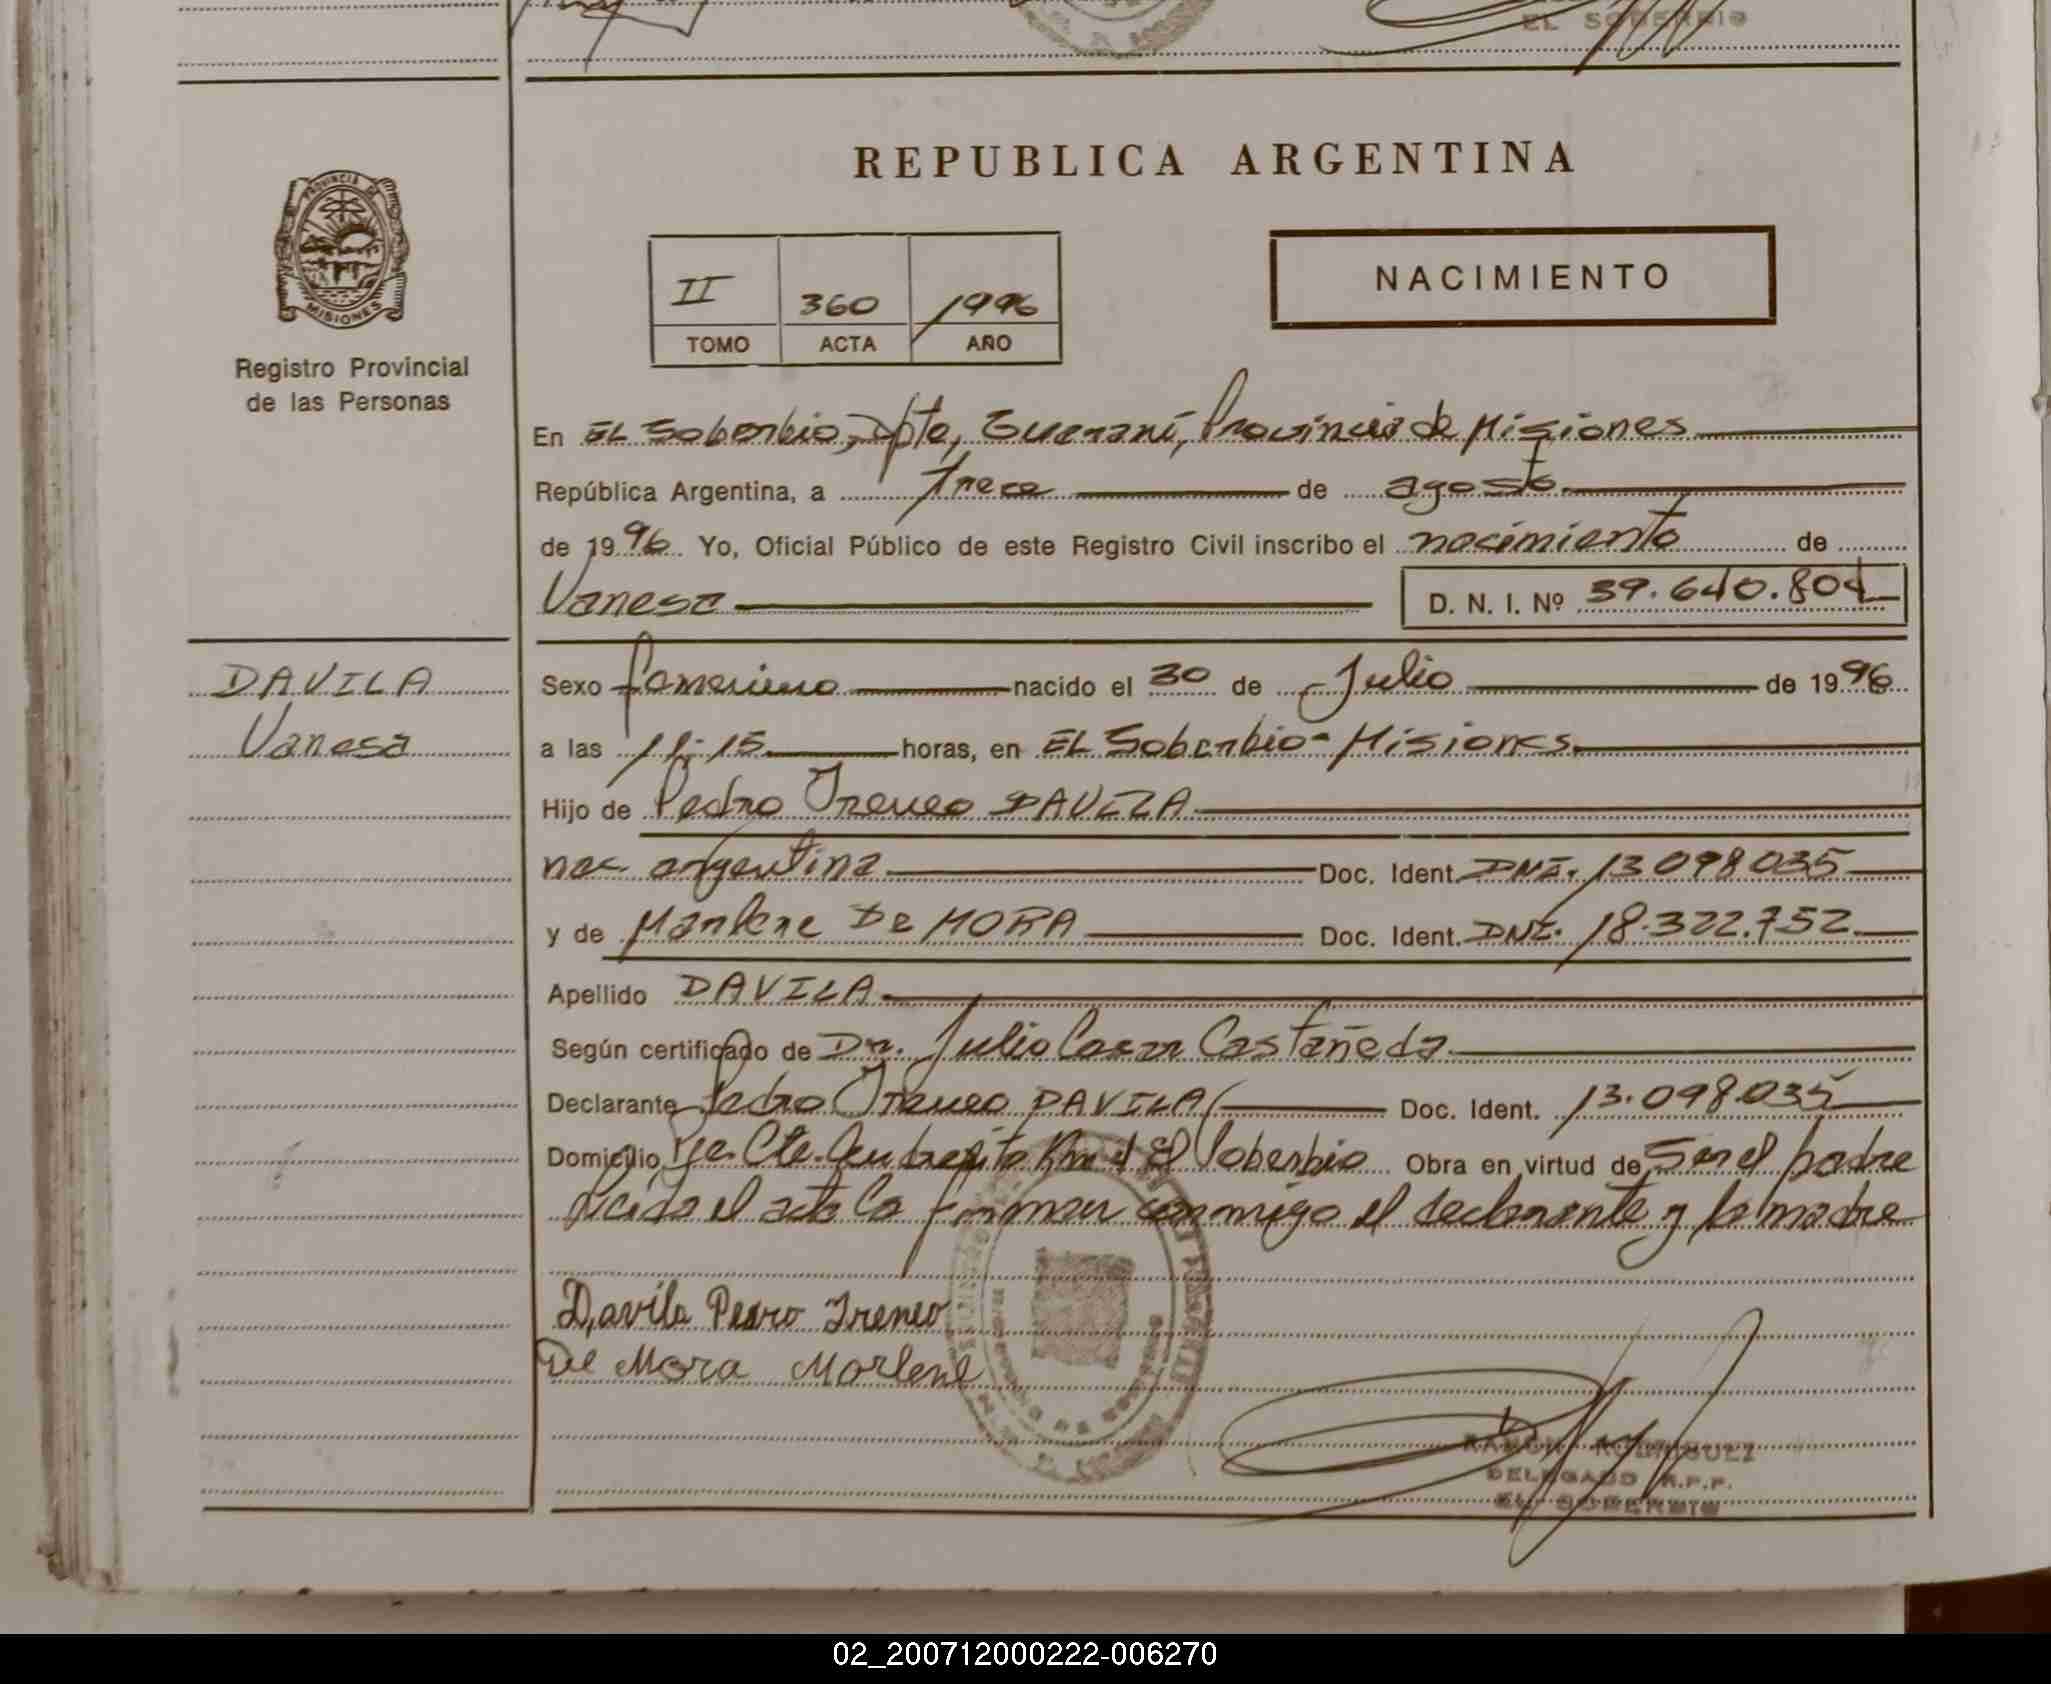 EL SOBERBIO
PROVINCIA DE
MISIONES
Registro Provincial
de las Personas
REPUBLICA ARGENTINA
II 360 1996
TOMO ACTA AÑO
NACIMIENTO
En EL Soberbio, Dpto, Guaraní, Provincia de Misiones
República Argentina, a trece de agosto
de 1996 Yo, Oficial Público de este Registro Civil inscribo el nacimiento de
Vanesa D. N. I. Nº 39.640.804
DAVILA
Vanesa
Sexo femenino nacido el 30 de Julio de 1996
a las 11:15 horas, en EL Soberbio - Misiones
Hijo de Pedro Ireneo DAVILA
nac argentina Doc. Ident. DNI. 13098035
y de Marlene De MORA Doc. Ident. DNI. 18.322.752
Apellido DAVILA
Según certificado de Dr. Julio Cesar Castañeda
Declarante Pedro Ireneo DAVILA Doc. Ident. 13.098.035
Domicilio Cte. Andresito Km El Soberbio Obra en virtud de Ser el padre
el acta la firman conmigo el declarante y la madre
Davila Pedro Ireneo
De Mora Marlene
RAMON RODRIGUEZ
DELEGADO R.P.P.
EL SOBERBIO
02_200712000222-006270